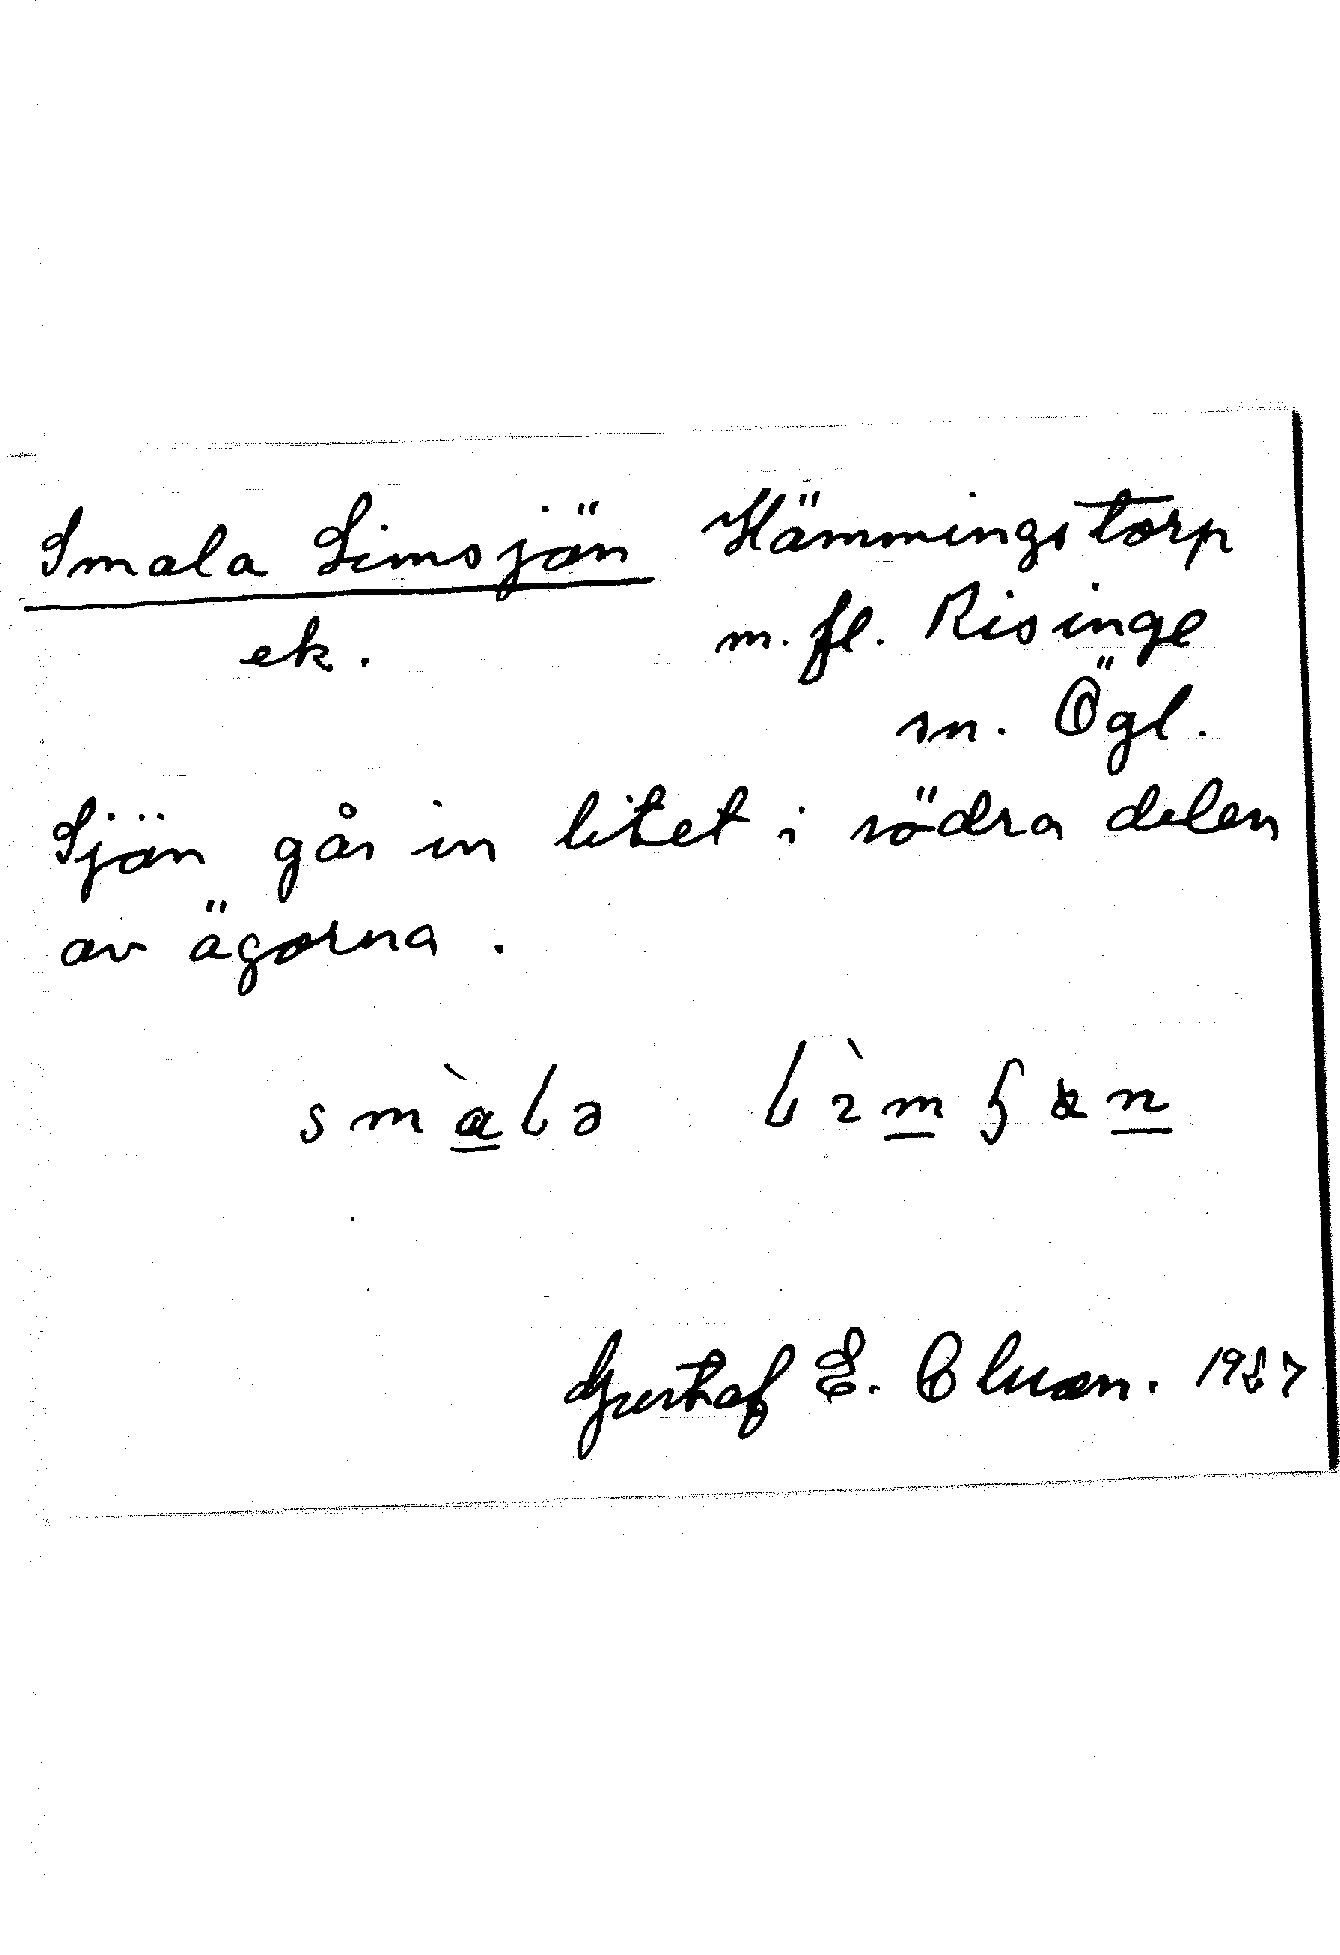 Smala Limsjön Hämmingstorp
ek. m. fl. Risinge
sn. Ögl.
Sjön går in litet i södra delen
av ägorna.
Gustaf E. 1927